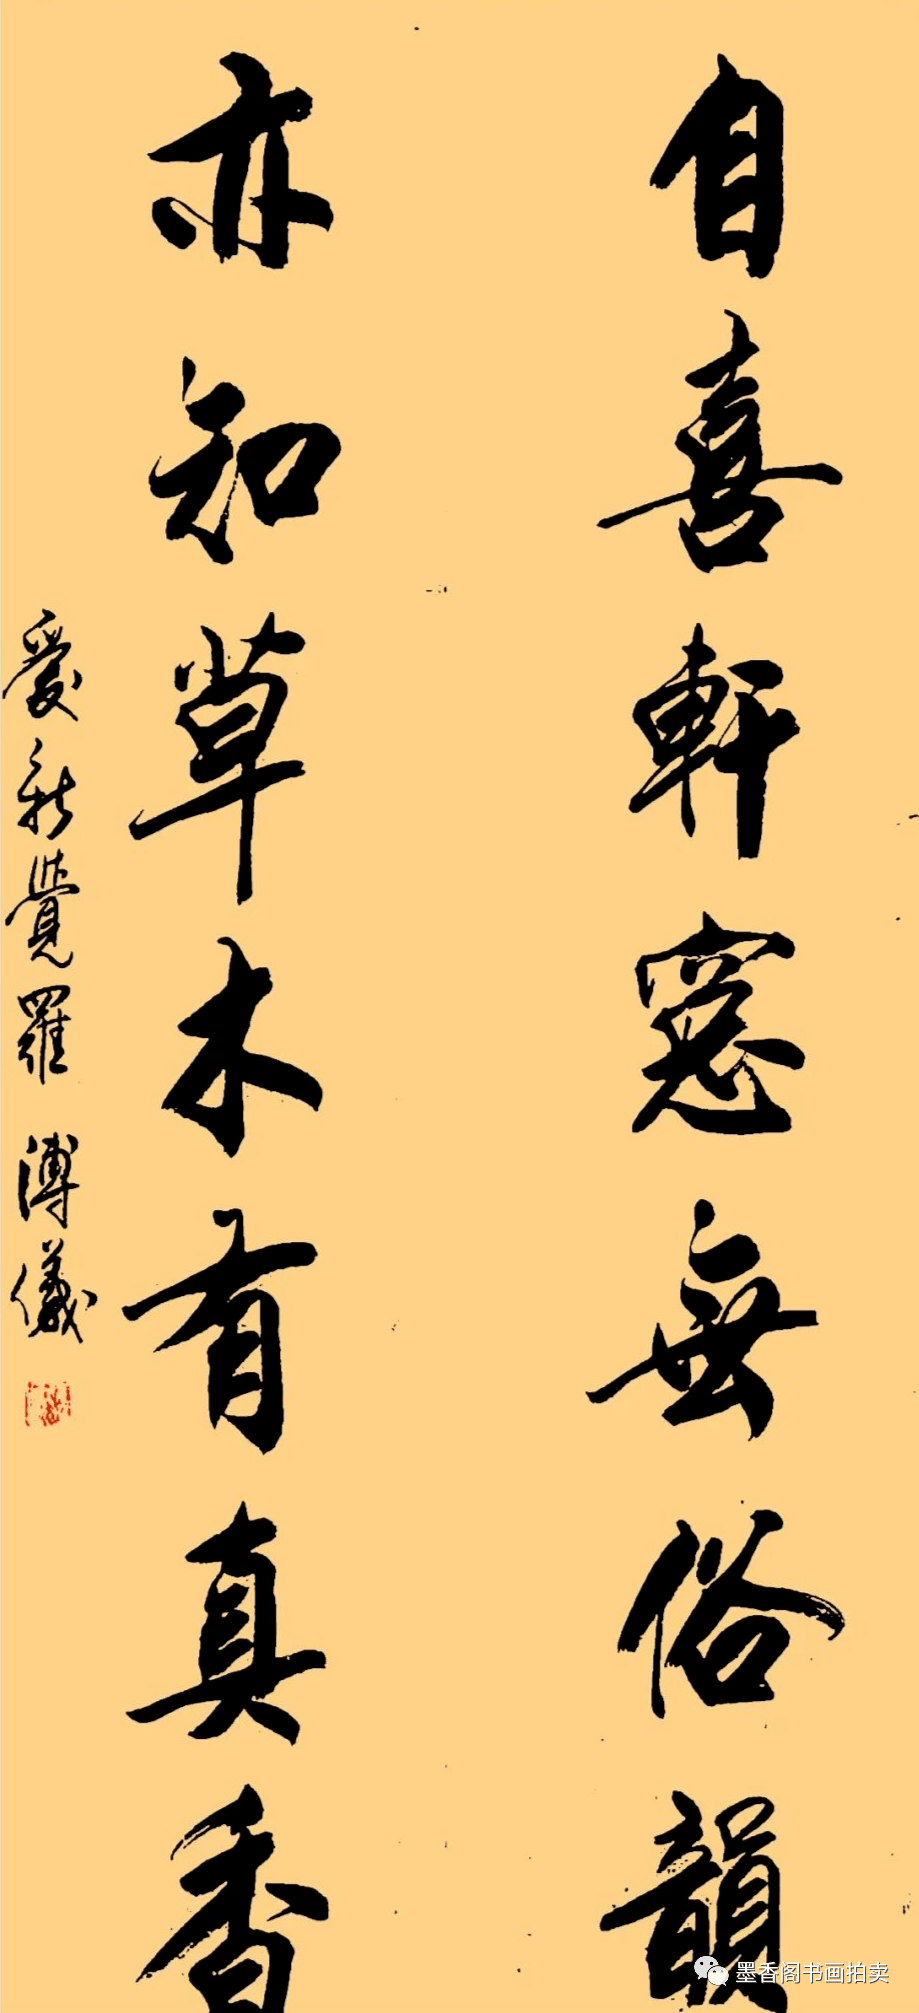 自喜軒窓無俗韻
亦知草木有真香
愛新覺羅 溥儀
墨香阁书画拍卖